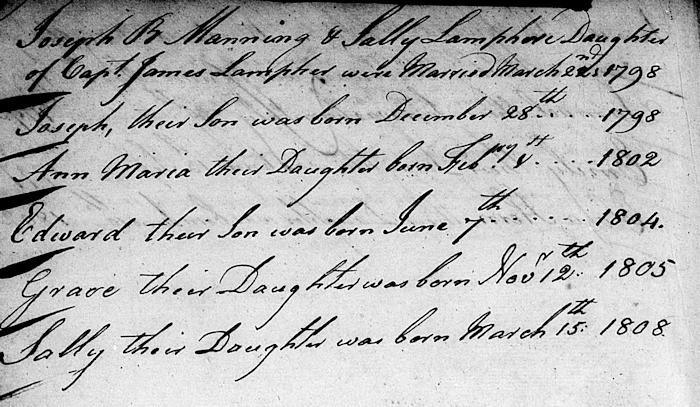 Joseph B Manning & Sally Lamphere Daughter
of Capt. James Lampher were Married March 22nd 1798
Joseph, their Son was born December 28th ..... 1798
Ann Maria their Daughter born Feb ry ..... 1802
Edward their Son was born June 7th ....... 1804.
Grace their Daughter was born Novr 12th. 1805
Sally their Daughter was born March 15th. 1808.